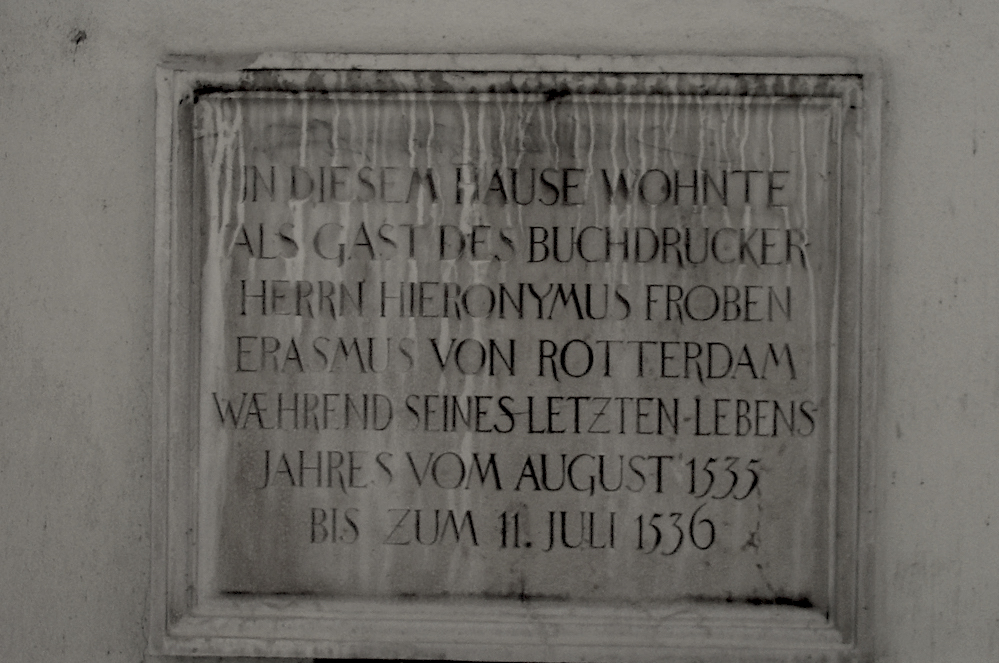 IN DIESEM HAUSE WOHNTE
ALS GAST DES BUCHDRUCKER
HERRN HIERONYMUS FROBEN
ERASMUS VON ROTTERDAM
WÆHREND SEINES LETZTEN LEBENS
JAHRES VOM AUGUST 1535
BIS ZUM 11. JULI 1536